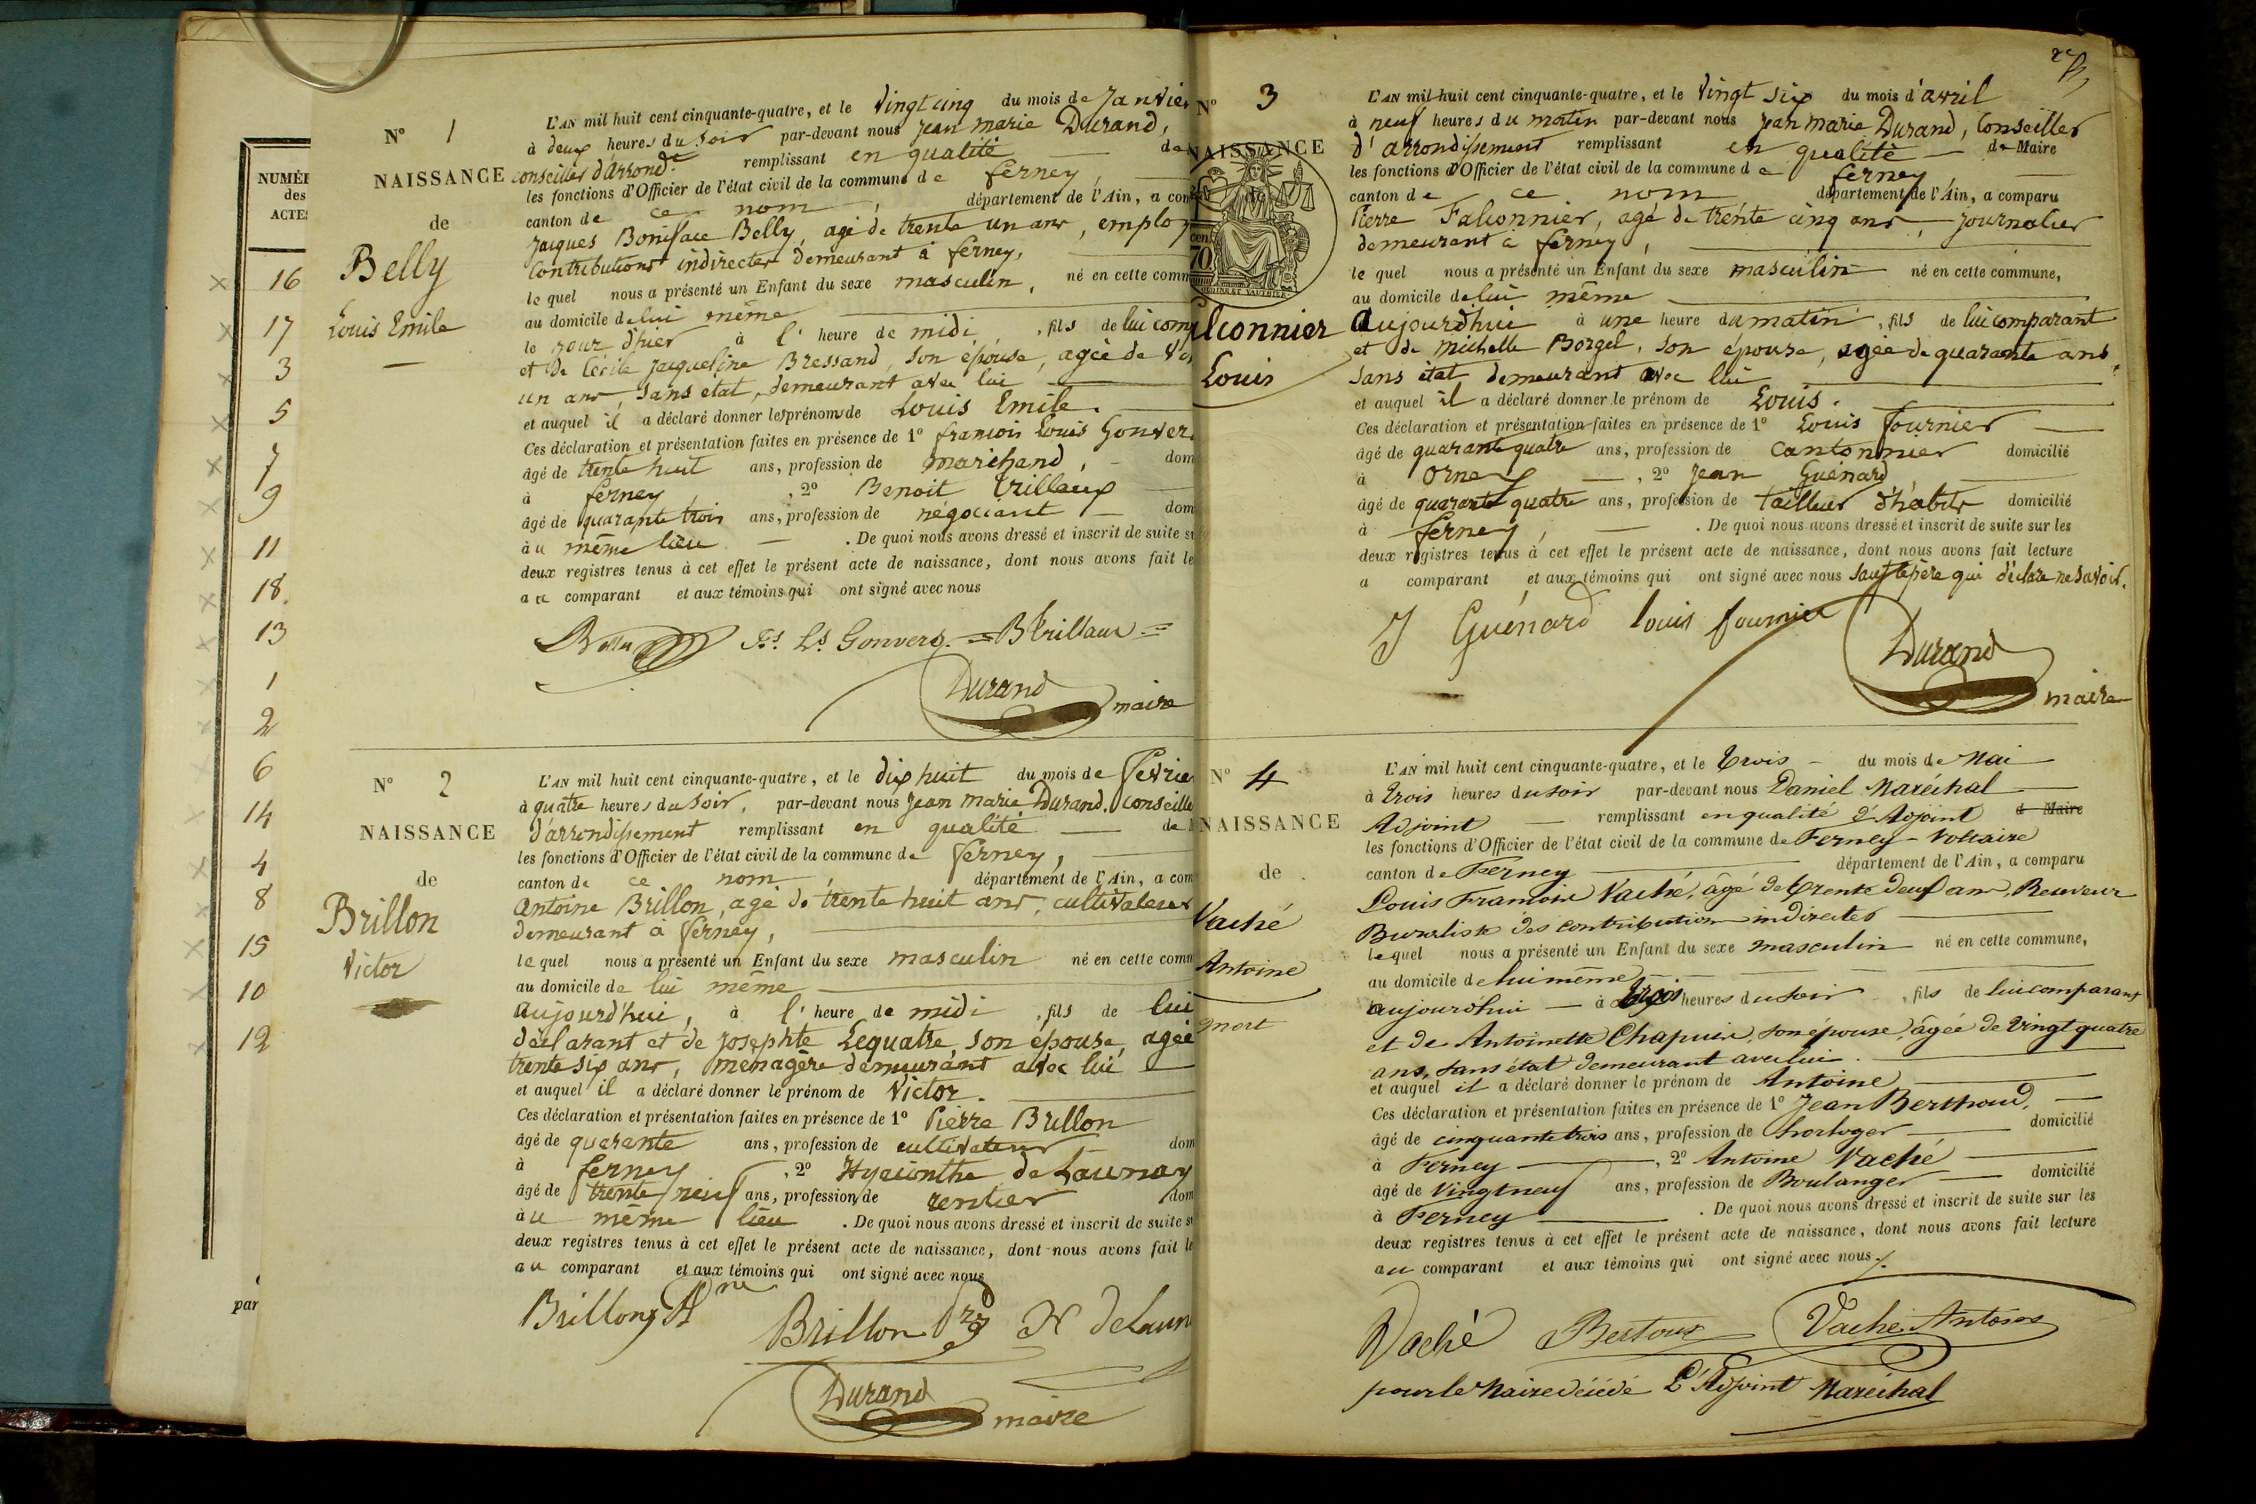 NUMÉ
des
ACTES
16
17
3
5
7
9
11
18.
13
1
2
6
14
4
8
15
10
12
par
N° 1
NAISSANCE
de
Belly
Louis Emile
L'AN mil huit cent cinquante-quatre, et le vingt cinq du mois de Janvier
à deux heures du soir par-devant nous jean marie Durand,
conseiller d'arrondt remplissant en qualité de
les fonctions d'Officier de l'état civil de la commune de ferney,
canton de ce nom, département de l'Ain, a com
jacques Boniface Belly, agé de trente un ans, employ
Contributions indirectes demeurant à ferney,
le quel nous a présenté un Enfant du sexe masculin, né en cette comm
au domicile de lui même
le jour d'hier à l' heure de midi, fils de lui comp
et de Cécile jacqueline Bressand, son épouse, agée de
un ans, sans etat, demeurant avec lui
et auquel il a déclaré donner les prénoms de Louis Emile.
Ces déclaration et présentation faites en présence de 1° francois Louis Gonvers
âgé de trente huit ans, profession de marchand, dom
à ferney, 2° Benoit Trillaux
âgé de quarante trois ans, profession de négociant dom
au même lieu. De quoi nous avons dressé et inscrit de suite s
deux registres tenus à cet effet le présent acte de naissance, dont nous avons fait le
au comparant et aux témoins qui ont signé avec nous
Belly Fs. Ls. Gonvers BTrillaux
Durand maire
N° 2
NAISSANCE
de
Brillon
Victor
L'AN mil huit cent cinquante-quatre, et le dix huit du mois de fevrie
à quatre heures du soir, par-devant nous jean marie Durand, conseille
d'arrondissement remplissant en qualité de
les fonctions d'Officier de l'état civil de la commune de ferney,
canton de ce nom, département de l'Ain, a com
antoine Brillon, agé de trente huit ans, cultivateur
demeurant à ferney,
le quel nous a présenté un Enfant du sexe masculin né en cette comm
au domicile de lui même
aujourd'hui, à l' heure de midi, fils de lui
déclarant et de josephte Lequatre son épouse, agée
trente six ans, menagère demeurant avec lui
et auquel il a déclaré donner le prénom de Victor.
Ces déclaration et présentation faites en présence de 1° Pierre Brillon
âgé de quarente ans, profession de cultivateur dom
à ferney, 2° Hyacinthe de Launay
âgé de trente neuf ans, profession de rentier dom
au même lieu. De quoi nous avons dressé et inscrit de suite s
deux registres tenus à cet effet le présent acte de naissance, dont nous avons fait le
au comparant et aux témoins qui ont signé avec nous
Brillon Ane Brillon Pre H de Laun
Durand maire
N° 3
NAISSANCE
70
lconnier
Louis
L'AN mil huit cent cinquante-quatre, et le vingt six du mois d'avril
à neuf heures du matin par-devant nous jean marie Durand, Conseiller
d'arrondissement remplissant en qualité de Maire
les fonctions d'Officier de l'état civil de la commune de ferney
canton de ce nom département de l'Ain, a comparu
Pierre Falconnier, agé de trente cinq ans, journalier
demeurant à ferney,
le quel nous a présenté un Enfant du sexe masculin né en cette commune,
au domicile de lui même
aujourdhui à une heure du matin, fils de lui comparant
et de Michelle Borgel, son épouse, agée de quarante ans,
sans état demeurant avec lui
et auquel il a déclaré donner le prénom de Louis.
Ces déclaration et présentation faites en présence de 1° Louis fournier
âgé de quarante quatre ans, profession de cantonnier domicilié
à Ornex, 2° jean Guénard
âgé de quarante quatre ans, profession de tailleur d'habits domicilié
à ferney,. De quoi nous avons dressé et inscrit de suite sur les
deux registres tenus à cet effet le présent acte de naissance, dont nous avons fait lecture
a comparant et aux témoins qui ont signé avec nous sauf le père qui déclare ne savoir.
J Guénard louis fournier
Durand maire
N° 4
NAISSANCE
de
Vaché
Antoine
mort
L'AN mil huit cent cinquante-quatre, et le trois du mois de Mai
à trois heures du soir par-devant nous Daniel Maréchal
Adjoint remplissant en qualité d'Adjoint de Maire
les fonctions d'Officier de l'état civil de la commune de Ferney-Voltaire
canton de Ferney département de l'Ain, a comparu
Louis Francois Vaché, âgé de trente deux ans, Receveur
Buraliste des contributions indirectes
lequel nous a présenté un Enfant du sexe masculin né en cette commune,
au domicile de lui même
aujourd'hui à trois heures du soir, fils de lui comparant
et de Antoinette Chapuis, son épouse, âgée de vingt quatre
ans, sans état demeurant avec lui.
et auquel il a déclaré donner le prénom de Antoine
Ces déclaration et présentation faites en présence de 1° Jean Berthoud,
âgé de cinquante trois ans, profession de horloger domicilié
à Ferney, 2° Antoine Vaché
âgé de vingt neuf ans, profession de Boulanger domicilié
à Ferney. De quoi nous avons dressé et inscrit de suite sur les
deux registres tenus à cet effet le présent acte de naissance, dont nous avons fait lecture
au comparant et aux témoins qui ont signé avec nous.
Vaché Bertoux Vache Antoine
pour le Maire décédé L'Adjoint Maréchal